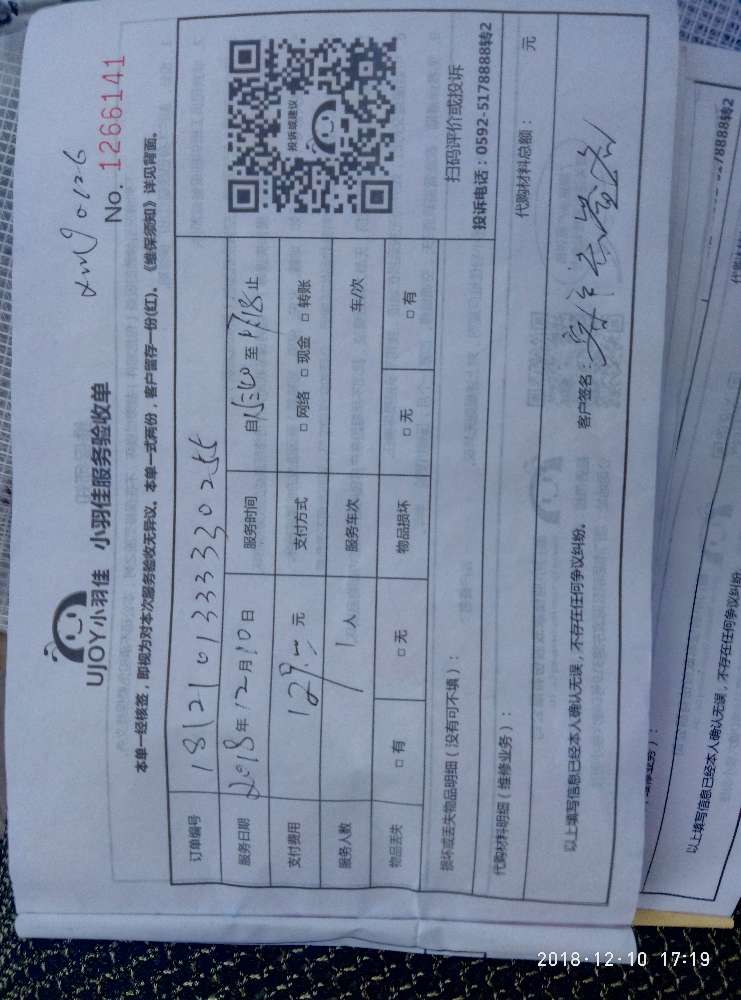 UJOY小羽佳 小羽佳服务验收单
xmy0126
No. 1266141
本单一经核签，即视为对本次服务验收无异议。本单一式两份，客户留存一份(红)。《维保须知》详见背面。
订单编号
服务日期 2018年12月10日 服务时间 自 至 17:18 止
支付费用 129.00 元 支付方式 □ 网络 □ 现金 □ 转账
服务人数 1 人 服务车次 车/次
物品丢失 □ 有 □ 无 物品损坏 □ 无 □ 有
投诉或建议
扫码评价或投诉
投诉电话：0592-5178888转2
损坏或丢失物品明细（没有可不填）：
代购材料明细（维修业务）： 代购材料总额： 元
以上填写信息已经本人确认无误，不存在任何争议纠纷。 客户签名：
5178888转2
代购材
维修业务）：
以上填写信息已经本人确认无误，不存在任何争议纠纷
2018·12·10 17:19